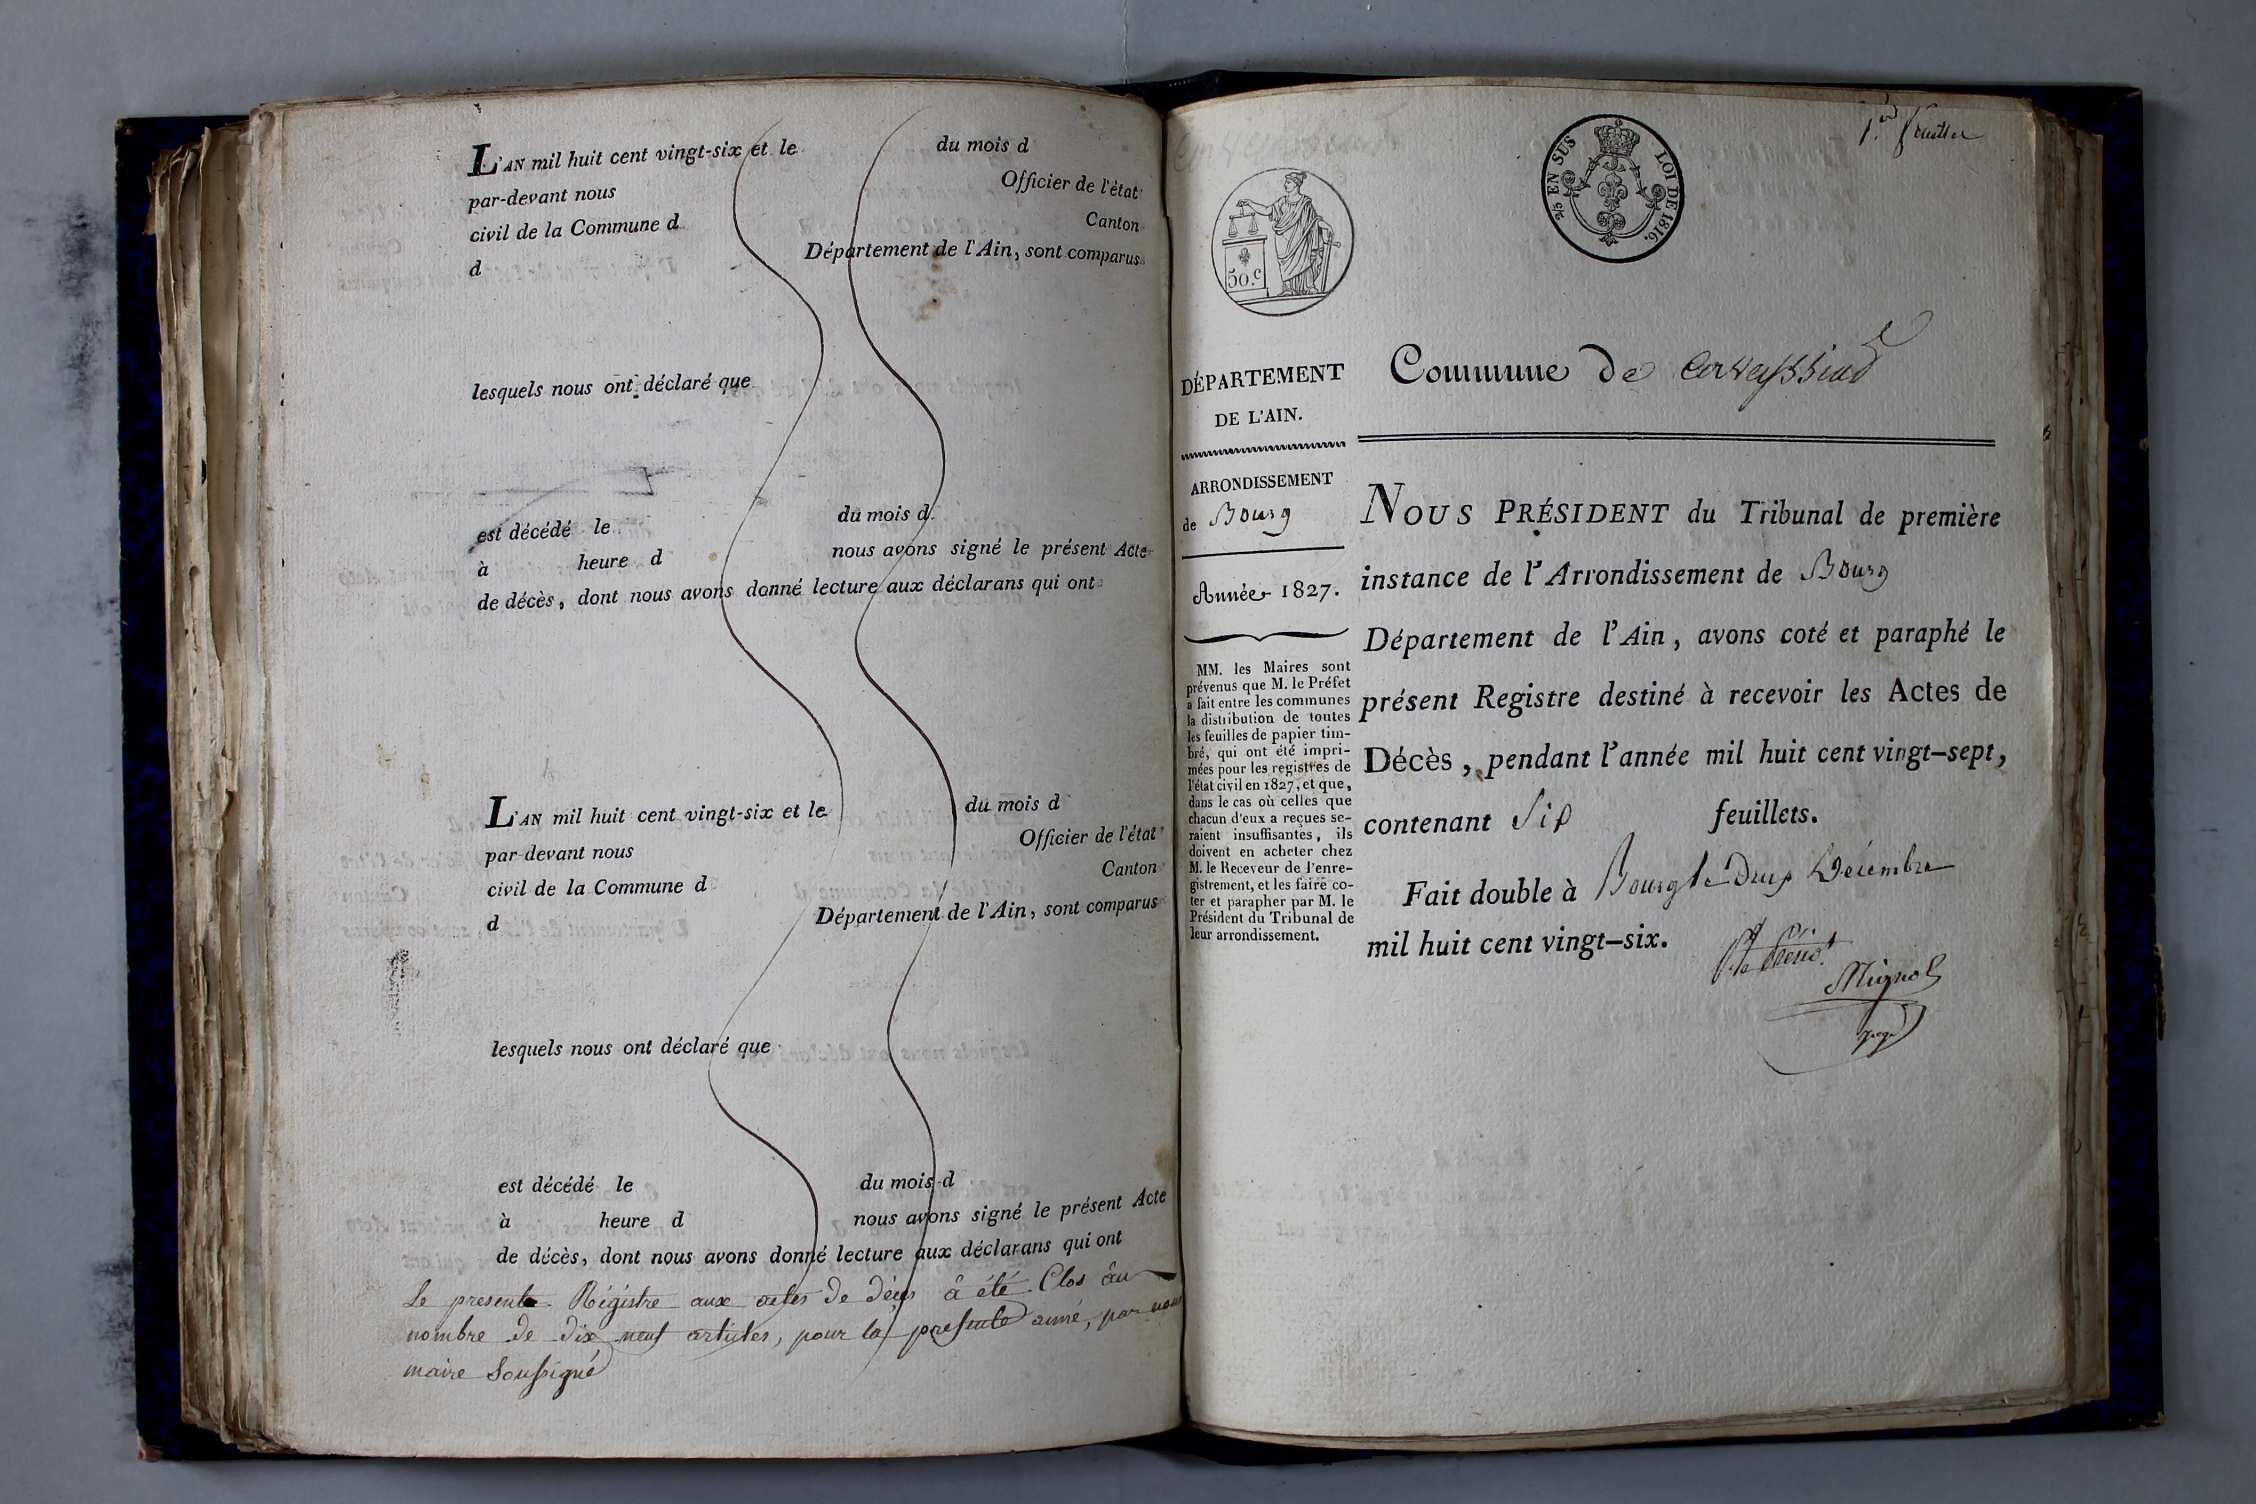 L'AN mil huit cent vingt-six et le du mois d
par-devant nous Officier de l'état
civil de la Commune d Canton
d Département de l'Ain, sont comparus
lesquels nous ont déclaré que
est décédé le du mois d
à heure d nous avons signé le présent Acte
de décès, dont nous avons donné lecture aux déclarans qui ont
L'AN mil huit cent vingt-six et le du mois d
par-devant nous Officier de l'état
civil de la Commune d Canton
d Département de l'Ain, sont comparus
lesquels nous ont déclaré que
est décédé le du mois d
à heure d nous avons signé le présent Acte
de décès, dont nous avons donné lecture aux déclarans qui ont
Le present Régistre aux actes de décès à été Clos au
nombre de dix neuf articles, pour la presente année, par nous
maire soussigné
1.er feuillet
50.c
2/5 EN SUS LOI DE 1816.
DÉPARTEMENT
DE L'AIN.
ARRONDISSEMENT
de Bourg
Année 1827.
MM. les Maires sont
prévenus que M. le Préfet
a fait entre les communes
la distribution de toutes
les feuilles de papier tim-
bré, qui ont été impri-
mées pour les registres de
l'état civil en 1827, et que,
dans le cas où celles que
chacun d'eux a reçues se-
raient insuffisantes, ils
doivent en acheter chez
M. le Receveur de l'enre-
gistrement, et les faire co-
ter et parapher par M. le
Président du Tribunal de
leur arrondissement.
Commune de Cerveyssiad
NOUS PRÉSIDENT du Tribunal de première
instance de l'Arrondissement de Bourg
Département de l'Ain, avons coté et paraphé le
présent Registre destiné à recevoir les Actes de
Décès, pendant l'année mil huit cent vingt-sept,
contenant Six feuillets.
Fait double à Bourg le Deux Décembre
mil huit cent vingt-six.
Mignot